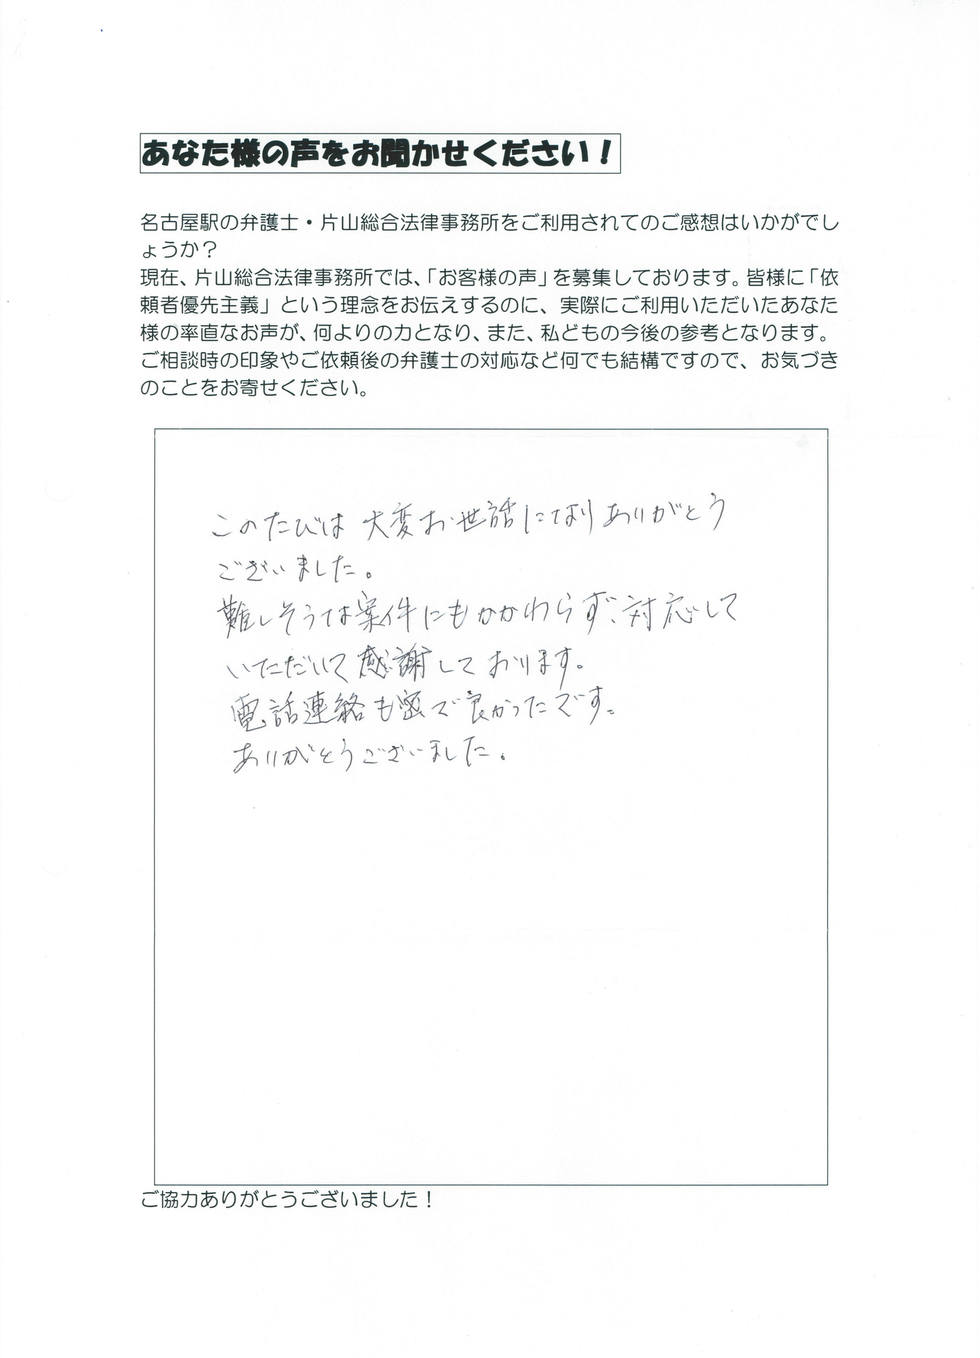 あなた様の声をお聞かせください！
名古屋駅の弁護士・片山総合法律事務所をご利用されてのご感想はいかがでし
ょうか？
現在、片山総合法律事務所では、「お客様の声」を募集しております。皆様に「依
頼者優先主義」という理念をお伝えするのに、実際にご利用いただいたあなた
様の率直なお声が、何よりの力となり、また、私どもの今後の参考となります。
ご相談時の印象やご依頼後の弁護士の対応など何でも結構ですので、お気づき
のことをお寄せください。
このたびは大変お世話になりありがとう
ございました。
難しそうな案件にもかかわらず、対応して
いただいて感謝しております。
電話連絡も密で良かったです。
ありがとうございました。
ご協力ありがとうございました！